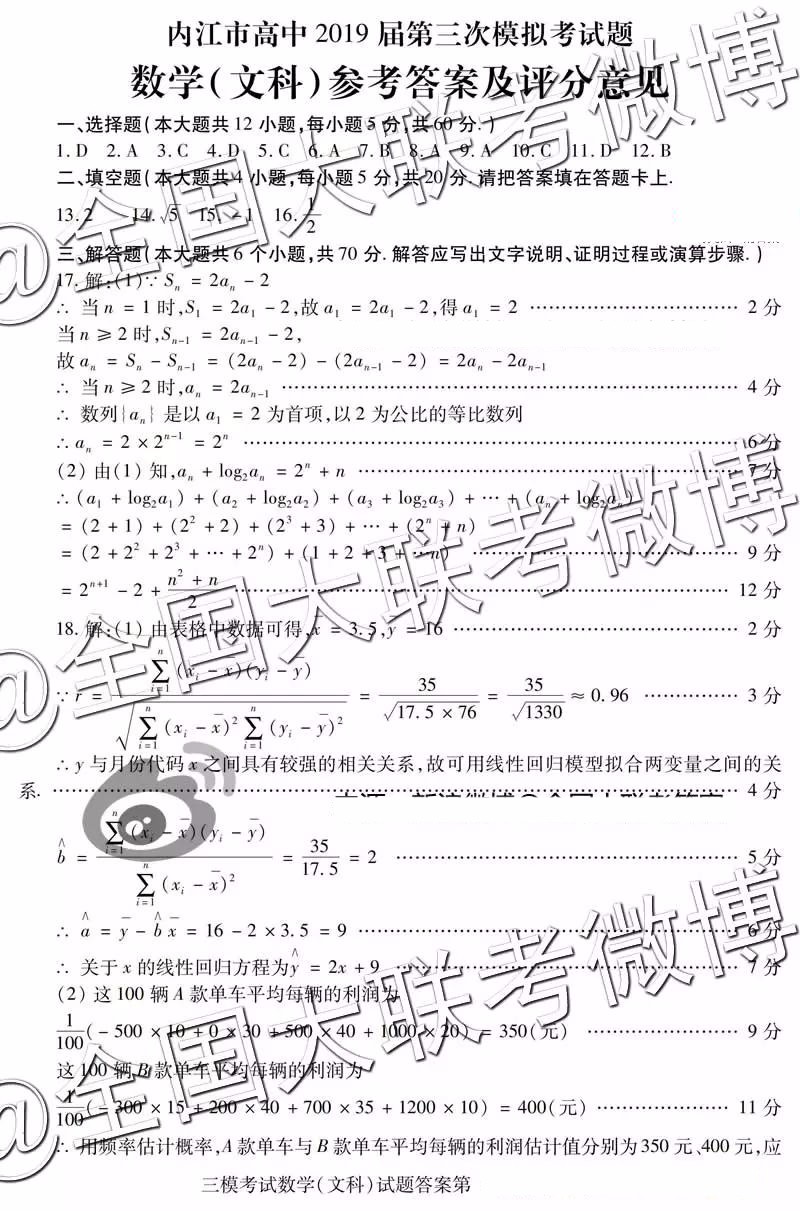 内江市高中 2019 届第三次模拟考试题
数学(文科)参考答案及评分意见
一、选择题(本大题共 12 小题,每小题 5 分,共 60 分.)
1. D 2. A 3. C 4. D 5. C 6. A 7. B 8. A 9. A 10. C 11. D 12. B
二、填空题(本大题共 4 小题,每小题 5 分,共 20 分. 请把答案填在答题卡上.
13. 2 14. √5 15. -1 16. 1/2
三、解答题(本大题共 6 个小题,共 70 分. 解答应写出文字说明、证明过程或演算步骤. )
17. 解:(1)∵ Sₙ = 2aₙ - 2
∴ 当 n = 1 时,S₁ = 2a₁ - 2,故 a₁ = 2a₁ - 2,得 a₁ = 2 …………………………… 2 分
当 n ≥ 2 时,Sₙ₋₁ = 2aₙ₋₁ - 2,
故 aₙ = Sₙ - Sₙ₋₁ = (2aₙ - 2) - (2aₙ₋₁ - 2) = 2aₙ - 2aₙ₋₁
∴ 当 n ≥ 2 时,aₙ = 2aₙ₋₁ …………………………… 4 分
∴ 数列{aₙ} 是以 a₁ = 2 为首项,以 2 为公比的等比数列
∴ aₙ = 2 × 2ⁿ⁻¹ = 2ⁿ …………………………… 6 分
(2) 由(1) 知,aₙ + log₂aₙ = 2ⁿ + n …………………………… 7 分
∴ (a₁ + log₂a₁) + (a₂ + log₂a₂) + (a₃ + log₂a₃) + … + (aₙ + log₂aₙ)
= (2 + 1) + (2² + 2) + (2³ + 3) + … + (2ⁿ + n)
= (2 + 2² + 2³ + … + 2ⁿ) + (1 + 2 + 3 + … n) …………………………… 9 分
= 2ⁿ⁺¹ - 2 + (n² + n)/2 …………………………… 12 分
18. 解:(1) 由表格中数据可得,x̄ = 3. 5,ȳ = 16 …………………………… 2 分
∵ r = ∑ᵢ₌₁ⁿ (xᵢ - x̄)(yᵢ - ȳ) / √(∑ᵢ₌₁ⁿ (xᵢ - x̄)² ∑ᵢ₌₁ⁿ (yᵢ - ȳ)²) = 35/√(17. 5 × 76) = 35/√1330 ≈ 0. 96 …………… 3 分
∴ y 与月份代码 x 之间具有较强的相关关系,故可用线性回归模型拟合两变量之间的关
系. …………………………… 4 分
b̂ = ∑ᵢ₌₁ⁿ (xᵢ - x̄)(yᵢ - ȳ) / ∑ᵢ₌₁ⁿ (xᵢ - x̄)² = 35/17. 5 = 2 …………………………… 5 分
∴ â = ȳ - b̂ x̄ = 16 - 2 × 3. 5 = 9 …………………………… 6 分
∴ 关于 x 的线性回归方程为 ŷ = 2x + 9 …………………………… 7 分
(2) 这 100 辆 A 款单车平均每辆的利润为
1/100(- 500 × 10 + 0 × 30 + 500 × 40 + 1000 × 20) = 350(元) …………………… 9 分
这 100 辆 B 款单车平均每辆的利润为
1/100(- 300 × 15 + 200 × 40 + 700 × 35 + 1200 × 10) = 400(元) ………………… 11 分
∴ 用频率估计概率,A 款单车与 B 款单车平均每辆的利润估计值分别为 350 元、400 元,应
三模考试数学(文科)试题答案第
@全国大联考微博
@全国大联考微博
@全国大联考微博